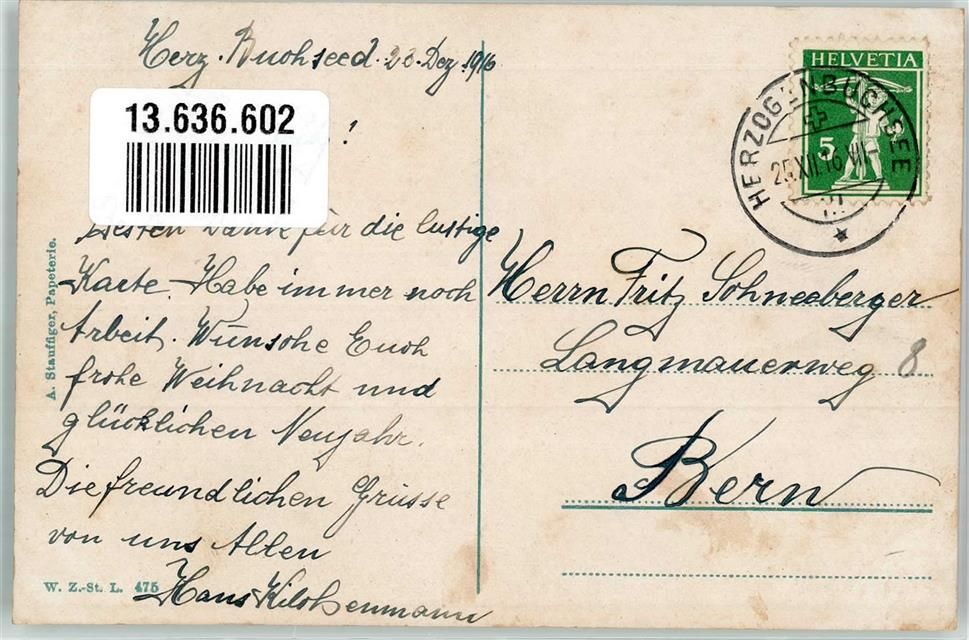 Herz. Buchseed. 23. Dez. 1916
13.636.602
!
Besten Danke für die lustige
Karte. Habe immer noch
Arbeit. Wünsche Euch
frohe Weihnacht und
glücklichen Neujahr.
Die freundlichen Grüsse
von uns Allen
Hans
A. Stauffiger, Papeterie.
W. Z.-St. L. 475
HELVETIA
5
HERZOGENBUCHSEE
25.XII.16.VII-
Herrn Fritz Schneeberger
Langmauerweg 8
Bern